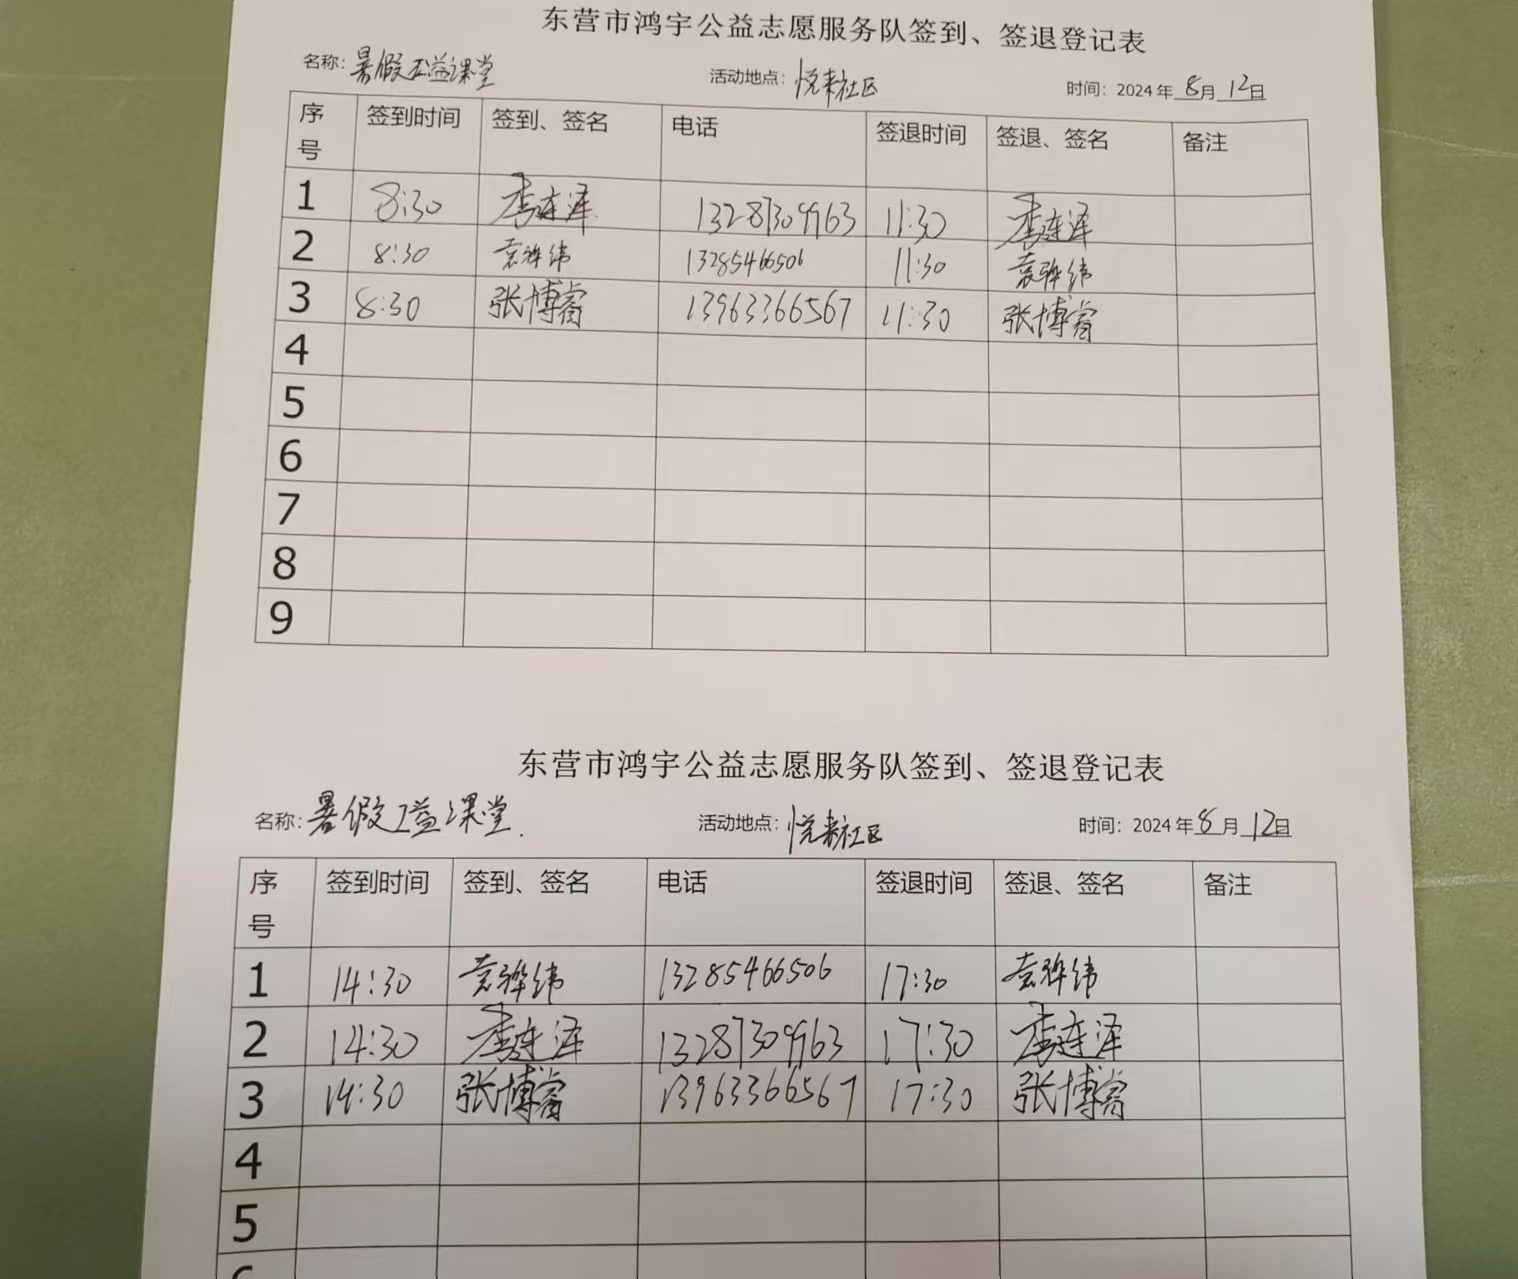 东营市鸿宇公益志愿服务队签到、签退登记表
名称：暑假公益课堂 活动地点：悦来社区 时间：2024年8月12日
序号 签到时间 签到、签名 电话 签退时间 签退、签名 备注
1 8:30 李连泽 13287309963 11:30 李连泽
2 8:30 袁骅纬 13285466506 11:30 袁骅纬
3 8:30 张博睿 13963366567 11:30 张博睿
4
5
6
7
8
9
东营市鸿宇公益志愿服务队签到、签退登记表
名称：暑假公益课堂. 活动地点：悦来社区 时间：2024年8月12日
序号 签到时间 签到、签名 电话 签退时间 签退、签名 备注
1 14:30 袁骅纬 13285466506 17:30 袁骅纬
2 14:30 李连泽 13287309963 17:30 李连泽
3 14:30 张博睿 13963366567 17:30 张博睿
4
5
6